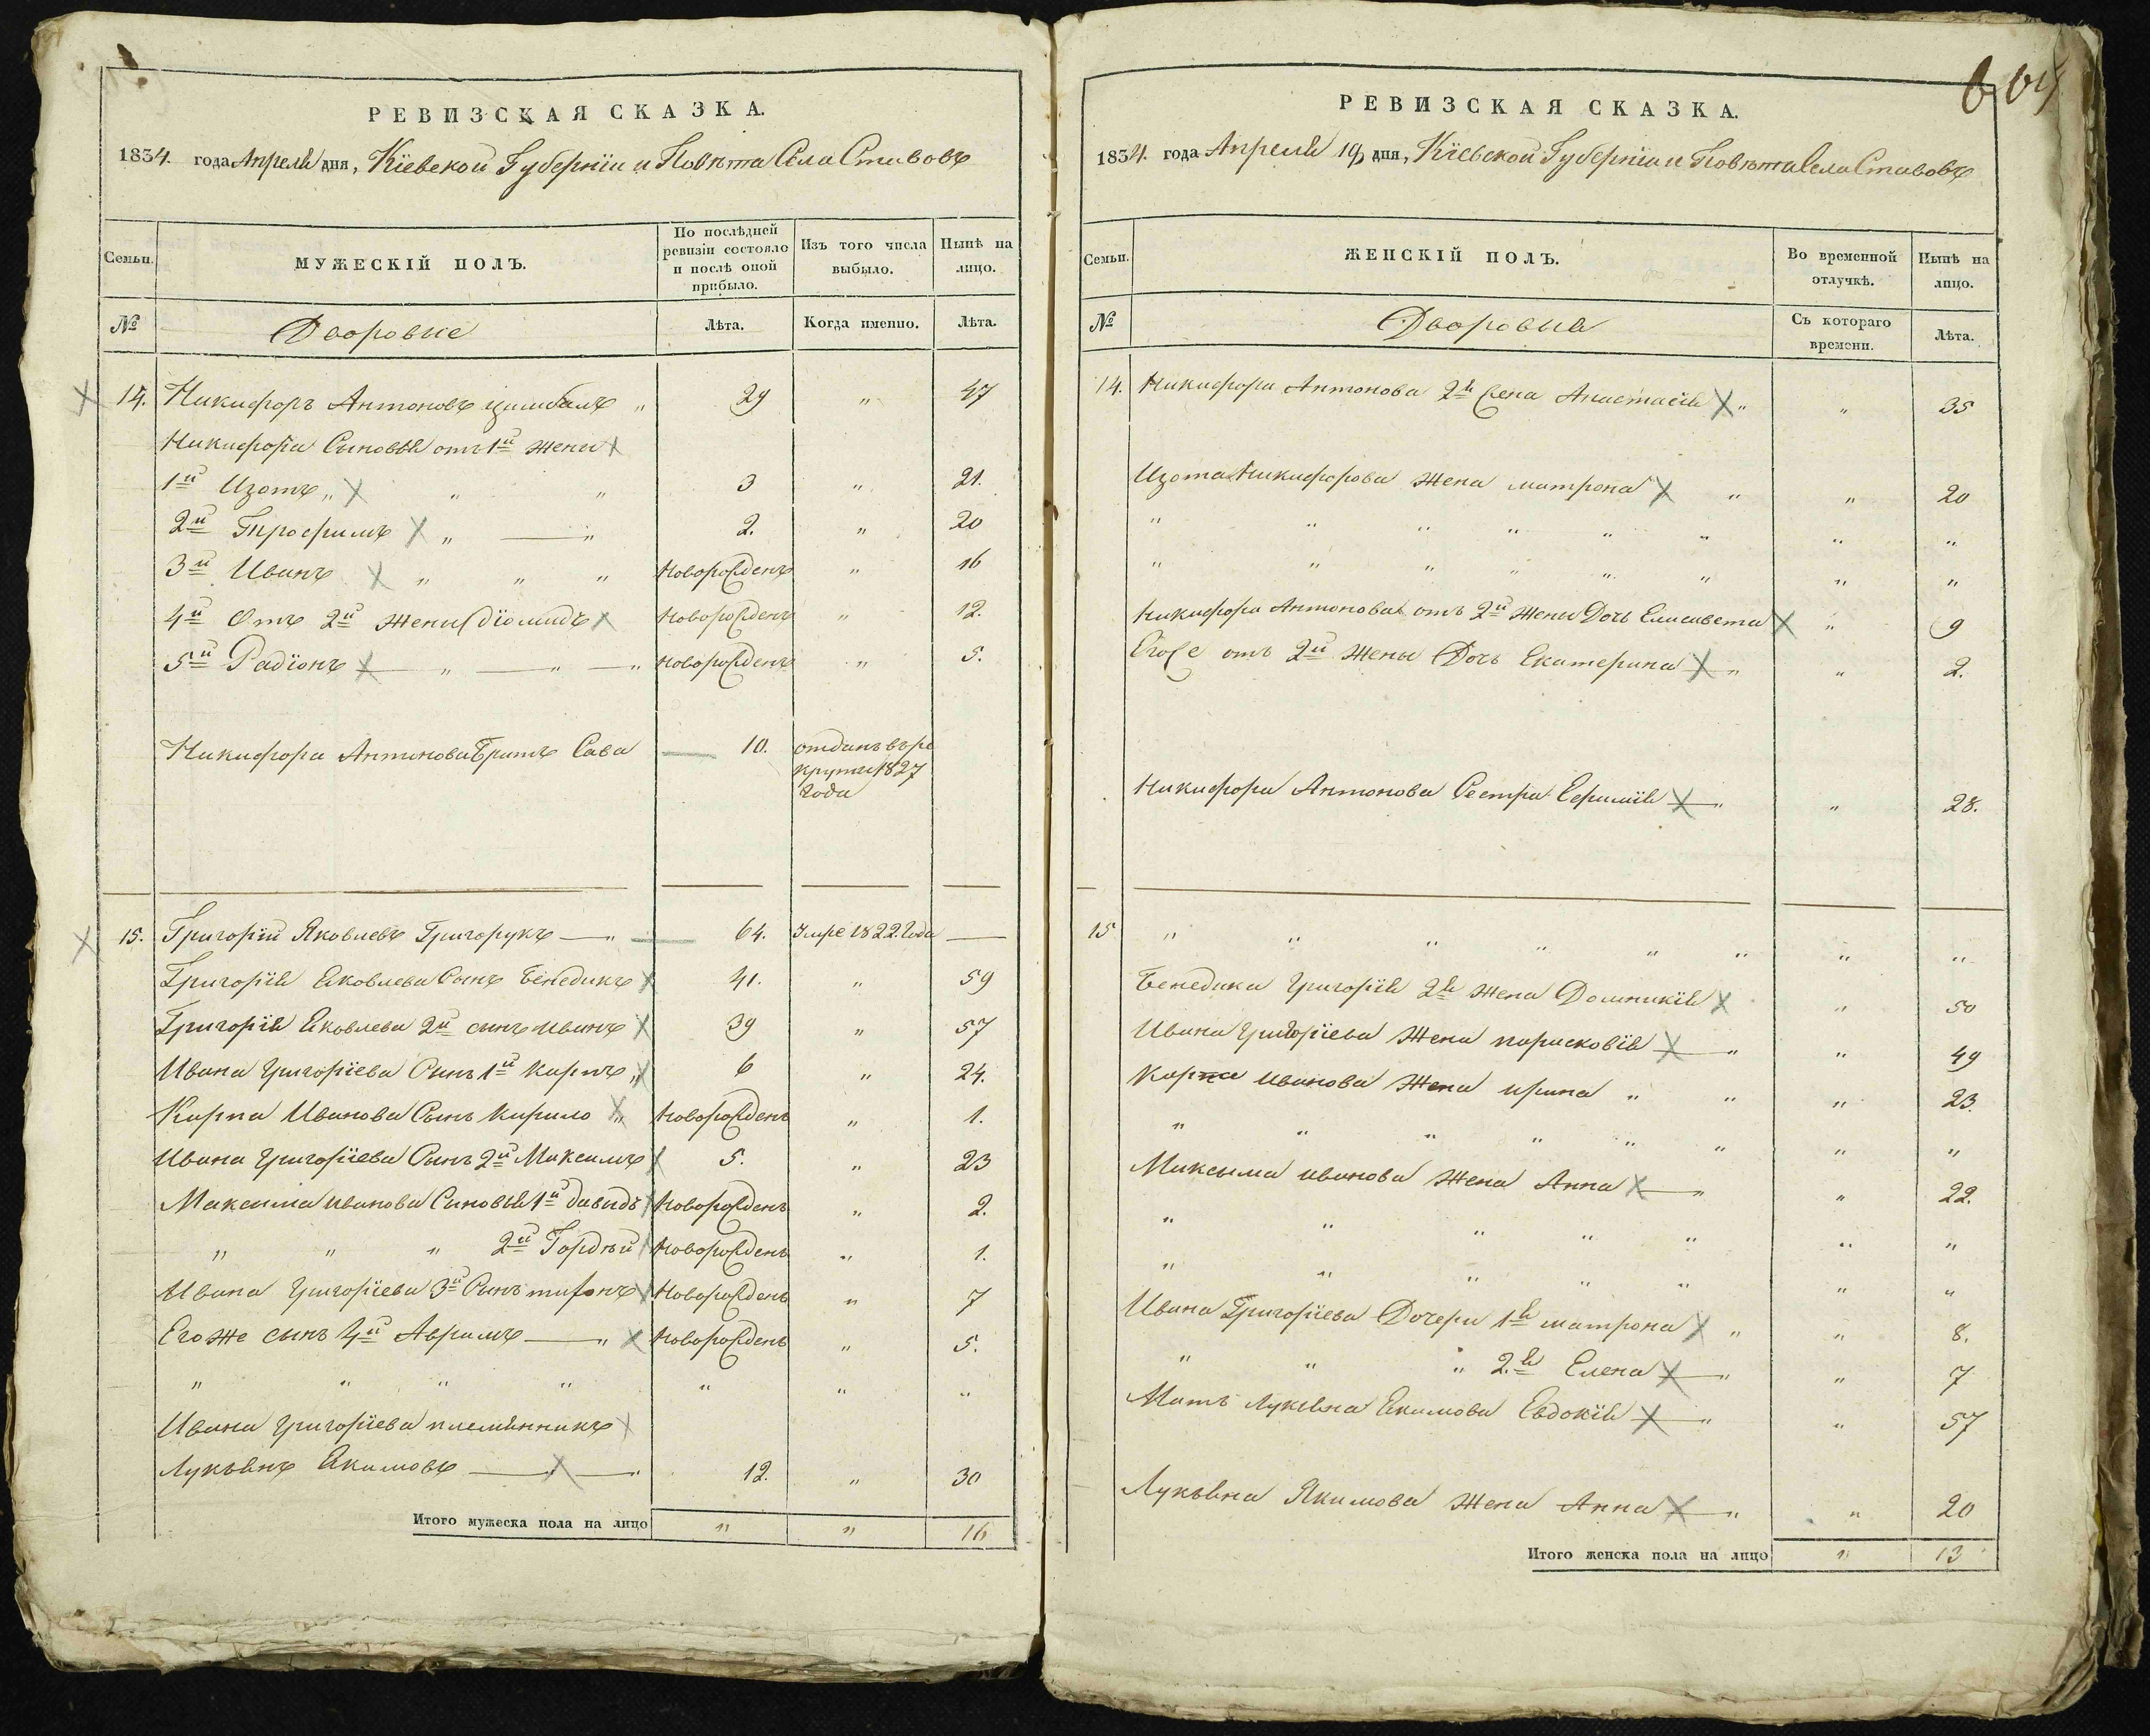 РЕВИЗСКАЯ СКАЗКА.
1834. года Апреля дня, Кіевской Губерніи и Повѣта Села Ставовъ
Семьи.
МУЖЕСКІЙ ПОЛЪ.
По послѣдней ревизіи состояло и послѣ оной прибыло.
Изъ того числа выбыло.
Нынѣ на лицо.
№
Дворовые
Лѣта.
Когда именно.
Лѣта.
14. Никифоръ Антоновъ Цимбалъ „ 29 „ 47
Никифора Сыновья отъ 1й жены
1й Изотъ „ „ „ 3 „ 21.
2й Трофимъ „ „ 2. „ 20
3й Иванъ „ „ „ новорожденъ „ 16
4й Отъ 2й жены Діомидъ новорожденъ „ 12.
5й Радіонъ „ „ „ новорожденъ „ 5.
Никифора Антонова Братъ Сава 10. отданъ въ ре
круты 1827
года
15. Григорій Яковлевъ Григорукъ „ 64. Умре 1822. года
Григорія Яковлева Сынъ Бенедикъ 41. „ 59
Григорія Яковлева 2й сынъ Иванъ 39 „ 57
Ивана Григоріева Сынъ 1й Карпъ „ 6 „ 24.
Карпа Иванова Сынъ Кирило „ новорожденъ „ 1.
Ивана Григоріева Сынъ 2й Максимъ 5. „ 23
Максима Иванова Сыновья 1й Давыдъ новорожденъ „ 2.
„ „ „ 2й Гордѣй новорожденъ „ 1.
Ивана Григоріева 3й Сынъ тифонъ новорожденъ „ 7
Его же сынъ 4й Аврамъ „ новорожденъ „ 5.
„ „ „ „ „ „ „
Ивана Григоріева племянникъ
Лукьянъ Якимовъ „ „ 12. „ 30
Итого мужеска пола на лицо „ „ 16
664
РЕВИЗСКАЯ СКАЗКА.
1834. года Апреля 19 дня, Кіевской Губерніи и Повѣта Села Ставовъ
Семьи.
ЖЕНСКІЙ ПОЛЪ.
Во временной отлучкѣ.
Нынѣ на лицо.
№
Дворовыя
Съ котораго времени.
Лѣта.
14. Никифора Антонова 2я жена Анастасія „ „ 35
Изота Никифорова жена матрона „ „ 20
„ „ „ „ „ „ „ „
„ „ „ „ „ „ „ „
Никифора Антонова отъ 2й жены Дочь Елисавета „ „ 9
Егоже отъ 2й жены Дочь Екатерина „ „ 2.
Никифора Антонова Сестра Ефимія „ „ 28.
15 „ „ „ „ „ „ „ „
Бенедика Григорія 2я жена Доминикія „ 50
Ивана Григоріева жена парасковія „ „ 49
Карпа Иванова жена ирина „ „ „ 23.
„ „ „ „ „ „ „ „
Максыма иванова жена Анна „ „ 22.
„ „ „ „ „ „ „
„ „ „ „ „ „ „
Ивана Григоріева Дочери 1я матрона „ „ 8.
„ „ „ 2.я Елена „ „ 7
Мать Лукьяна Якимова Евдокія „ „ 57
Лукьяна Якимова жена Анна „ „ 20
Итого женска пола на лицо „ 13